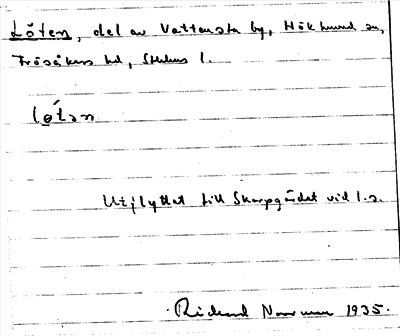 Löten, del av Vattensta by, Hökhuvud sn,
Frösåkers hd, Sthlms l.
lø̀tən
Utflyttat till Skarpgärdet vid l.s.
Rickard Norrman 1935.